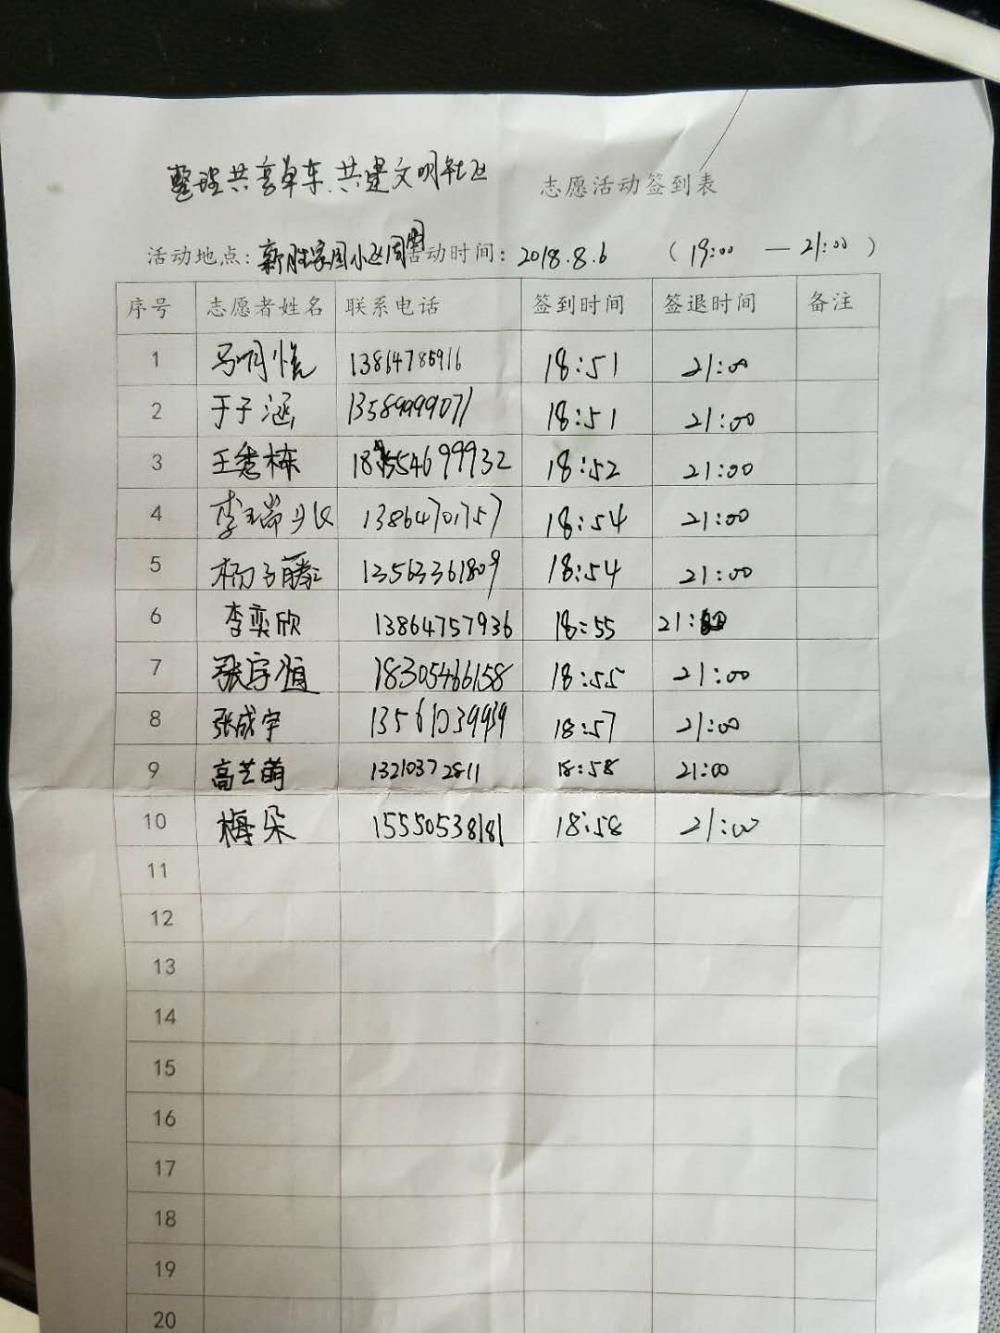 整理共享单车.共建文明社区 志愿活动签到表
活动地点: 新旺家园小区周围 活动时间: 2018.8.6 (19:00 — 21:00)
序号 志愿者姓名 联系电话 签到时间 签退时间 备注
1 马明悦 13864785916 18:51 21:00
2 于子涵 13589999071 18:51 21:00
3 王秀栋 18:52 21:00
4 李瑞 13864701757 18:54 21:00
5 杨子藤 13563361809 18:54 21:00
6 李奕欣 13864757936 18:55 21:00
7 张宇恒 18305466158 18:55 21:00
8 张成宇 13561039939 18:57 21:00
9 高芝萌 13210372811 18:58 21:00
10 梅朵 15550538181 18:58 21:00
11
12
13
14
15
16
17
18
19
20